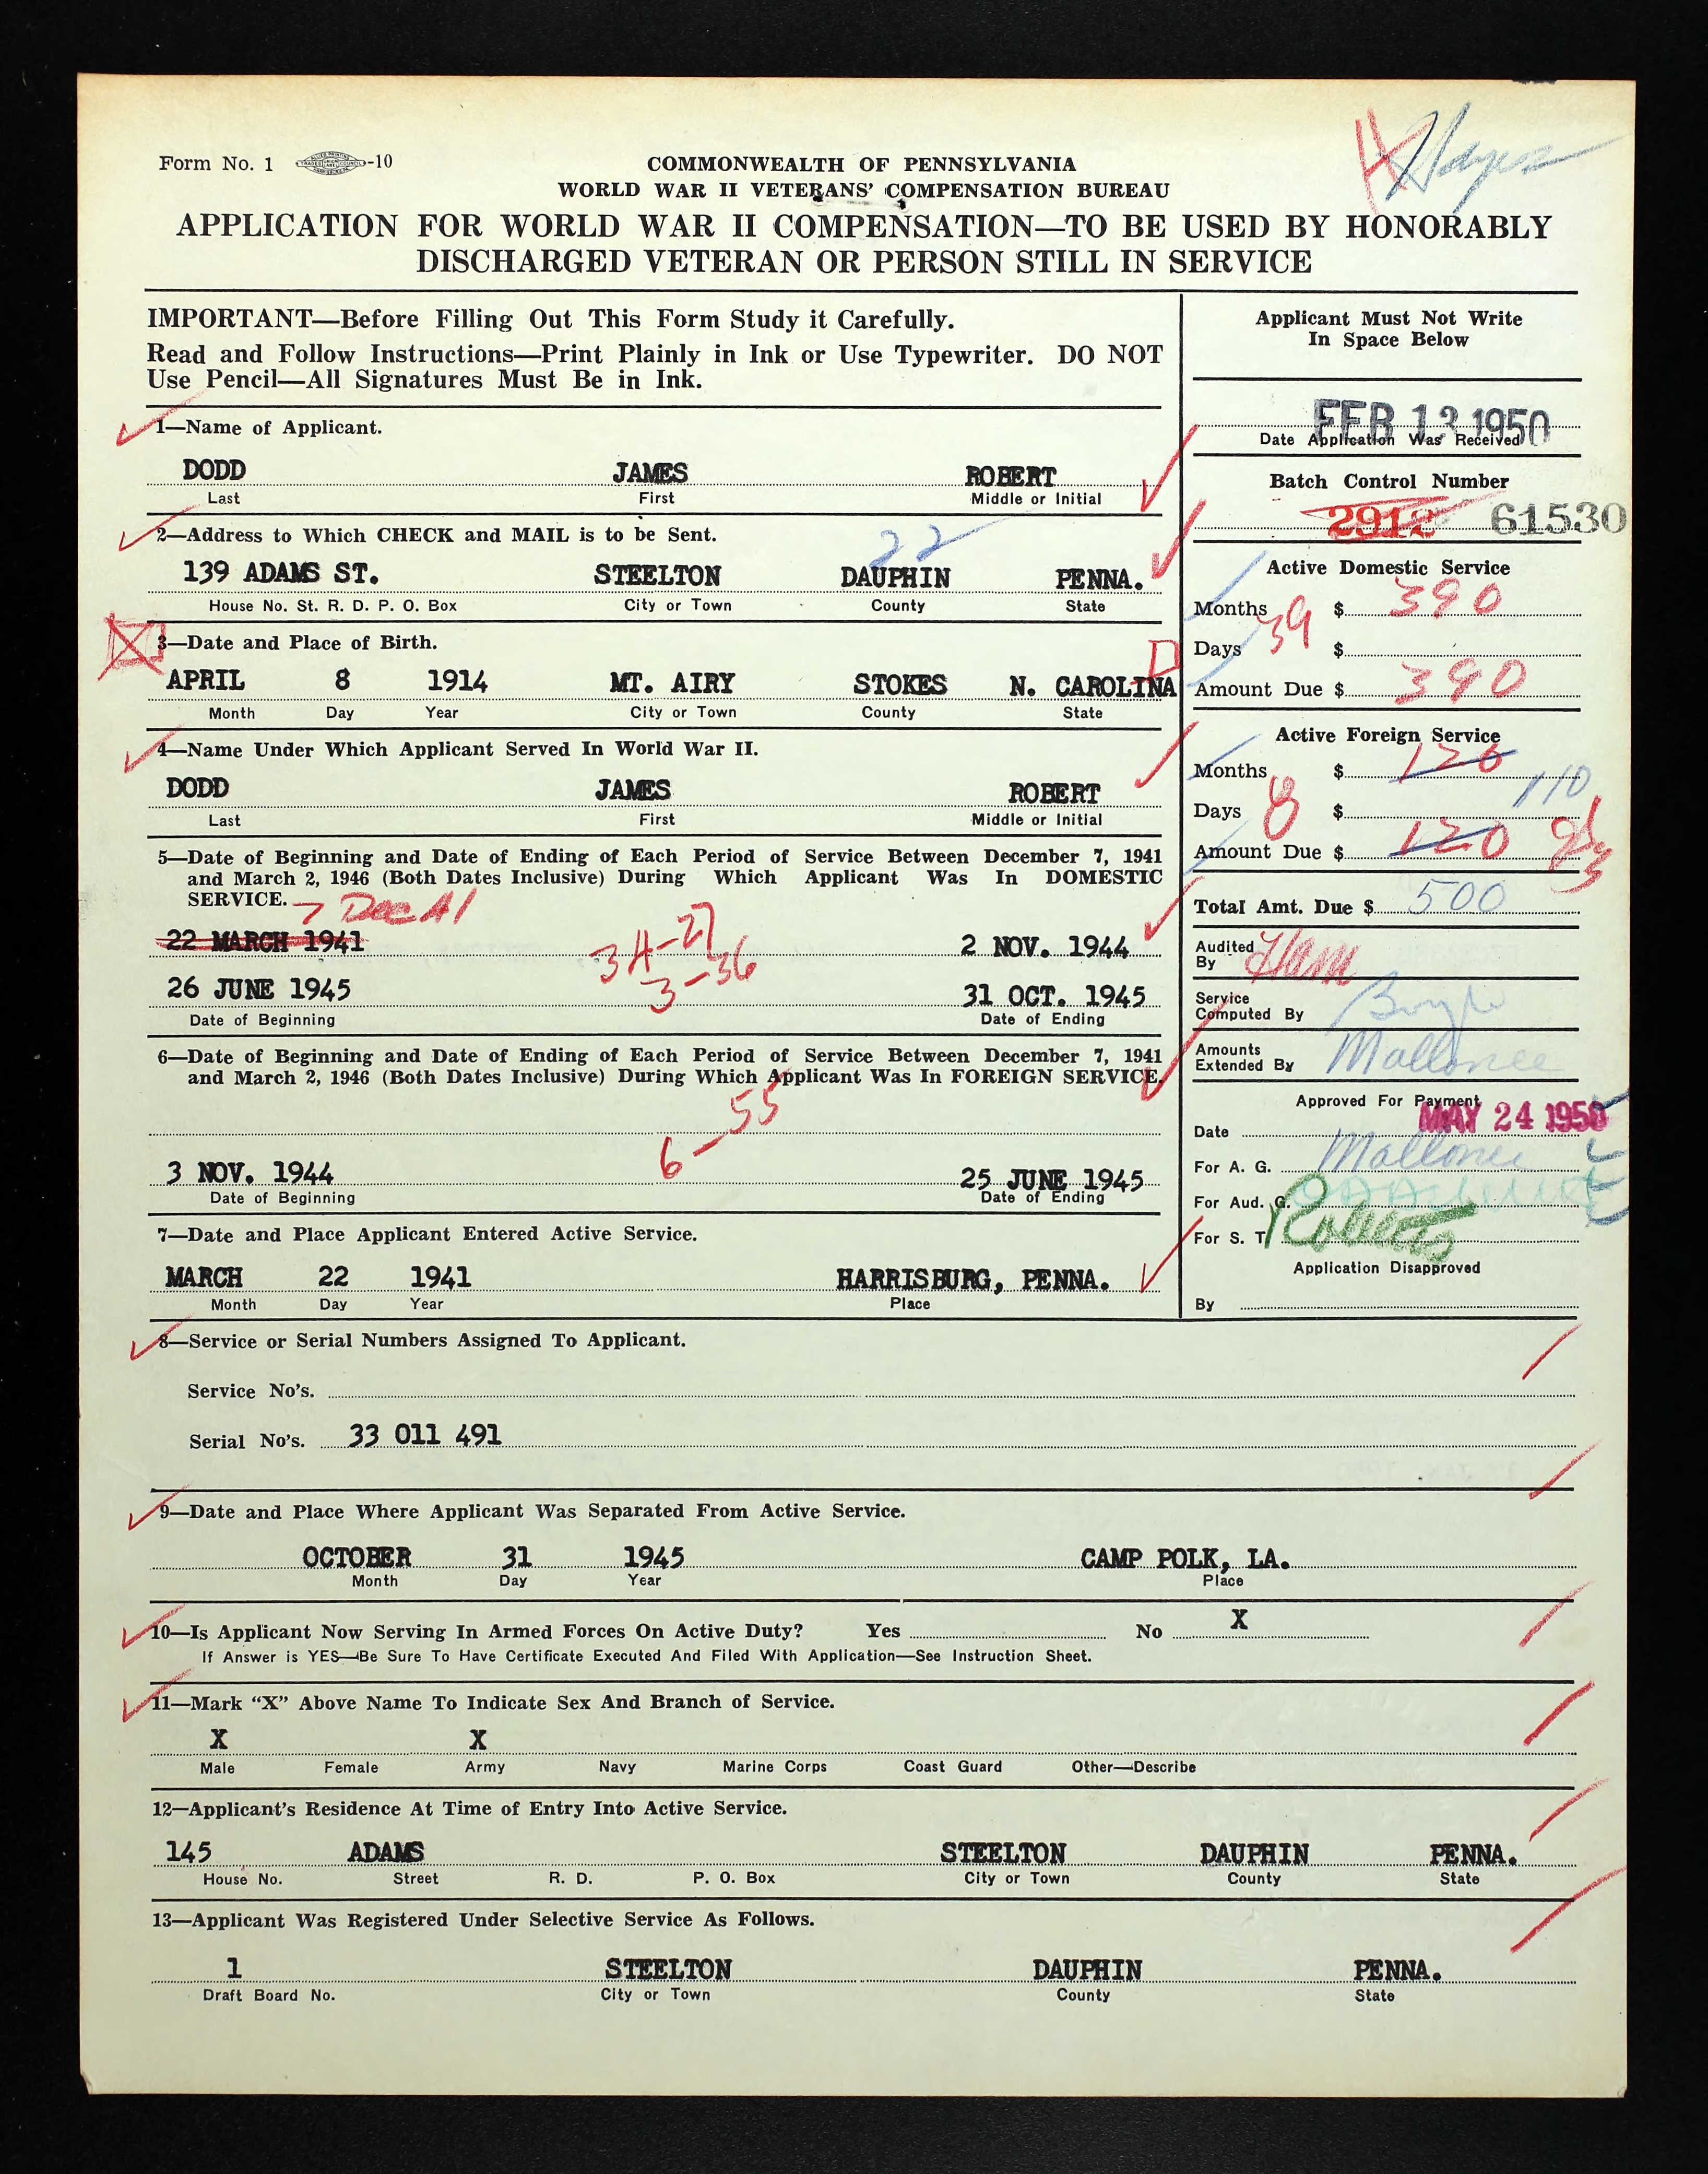 Hayes
Form No. 1 -10
COMMONWEALTH OF PENNSYLVANIA
WORLD WAR II VETERANS' COMPENSATION BUREAU
APPLICATION FOR WORLD WAR II COMPENSATION—TO BE USED BY HONORABLY
DISCHARGED VETERAN OR PERSON STILL IN SERVICE
IMPORTANT—Before Filling Out This Form Study it Carefully.
Read and Follow Instructions—Print Plainly in Ink or Use Typewriter. DO NOT
Use Pencil—All Signatures Must Be in Ink.
1—Name of Applicant.
DODD JAMES ROBERT
Last First Middle or Initial
2—Address to Which CHECK and MAIL is to be Sent.
22
139 ADAMS ST. STEELTON DAUPHIN PENNA.
House No. St. R. D. P. O. Box City or Town County State
3—Date and Place of Birth.
APRIL 8 1914 MT. AIRY STOKES N. CAROLINA
Month Day Year City or Town County State
4—Name Under Which Applicant Served In World War II.
DODD JAMES ROBERT
Last First Middle or Initial
5—Date of Beginning and Date of Ending of Each Period of Service Between December 7, 1941
and March 2, 1946 (Both Dates Inclusive) During Which Applicant Was In DOMESTIC
SERVICE. 7 Dec 41
22 MARCH 1941 34-27 2 NOV. 1944
3-36
26 JUNE 1945 31 OCT. 1945
Date of Beginning Date of Ending
6—Date of Beginning and Date of Ending of Each Period of Service Between December 7, 1941
and March 2, 1946 (Both Dates Inclusive) During Which Applicant Was In FOREIGN SERVICE.
6-55
3 NOV. 1944 25 JUNE 1945
Date of Beginning Date of Ending
7—Date and Place Applicant Entered Active Service.
MARCH 22 1941 HARRISBURG, PENNA.
Month Day Year Place
Applicant Must Not Write
In Space Below
FEB 13 1950
Date Application Was Received
Batch Control Number
2912 61530
Active Domestic Service
Months 39 $ 390
Days $
Amount Due $ 390
Active Foreign Service
Months $ 120
110
Days 8 $
Amount Due $ 120
Total Amt. Due $ 500
Audited
By Ham
Service
Computed By Boyle
Amounts
Extended By Mallonee
Approved For Payment
Date MAY 24 1950
For A. G. Mallonee
For Aud. G.
For S. T. Roberts
Application Disapproved
By
8—Service or Serial Numbers Assigned To Applicant.
Service No's.
Serial No's. 33 011 491
9—Date and Place Where Applicant Was Separated From Active Service.
OCTOBER 31 1945 CAMP POLK, LA.
Month Day Year Place
10—Is Applicant Now Serving In Armed Forces On Active Duty? Yes No X
If Answer is YES—Be Sure To Have Certificate Executed And Filed With Application—See Instruction Sheet.
11—Mark "X" Above Name To Indicate Sex And Branch of Service.
X X
Male Female Army Navy Marine Corps Coast Guard Other—Describe
12—Applicant's Residence At Time of Entry Into Active Service.
145 ADAMS STEELTON DAUPHIN PENNA.
House No. Street R. D. P. O. Box City or Town County State
13—Applicant Was Registered Under Selective Service As Follows.
1 STEELTON DAUPHIN PENNA.
Draft Board No. City or Town County State